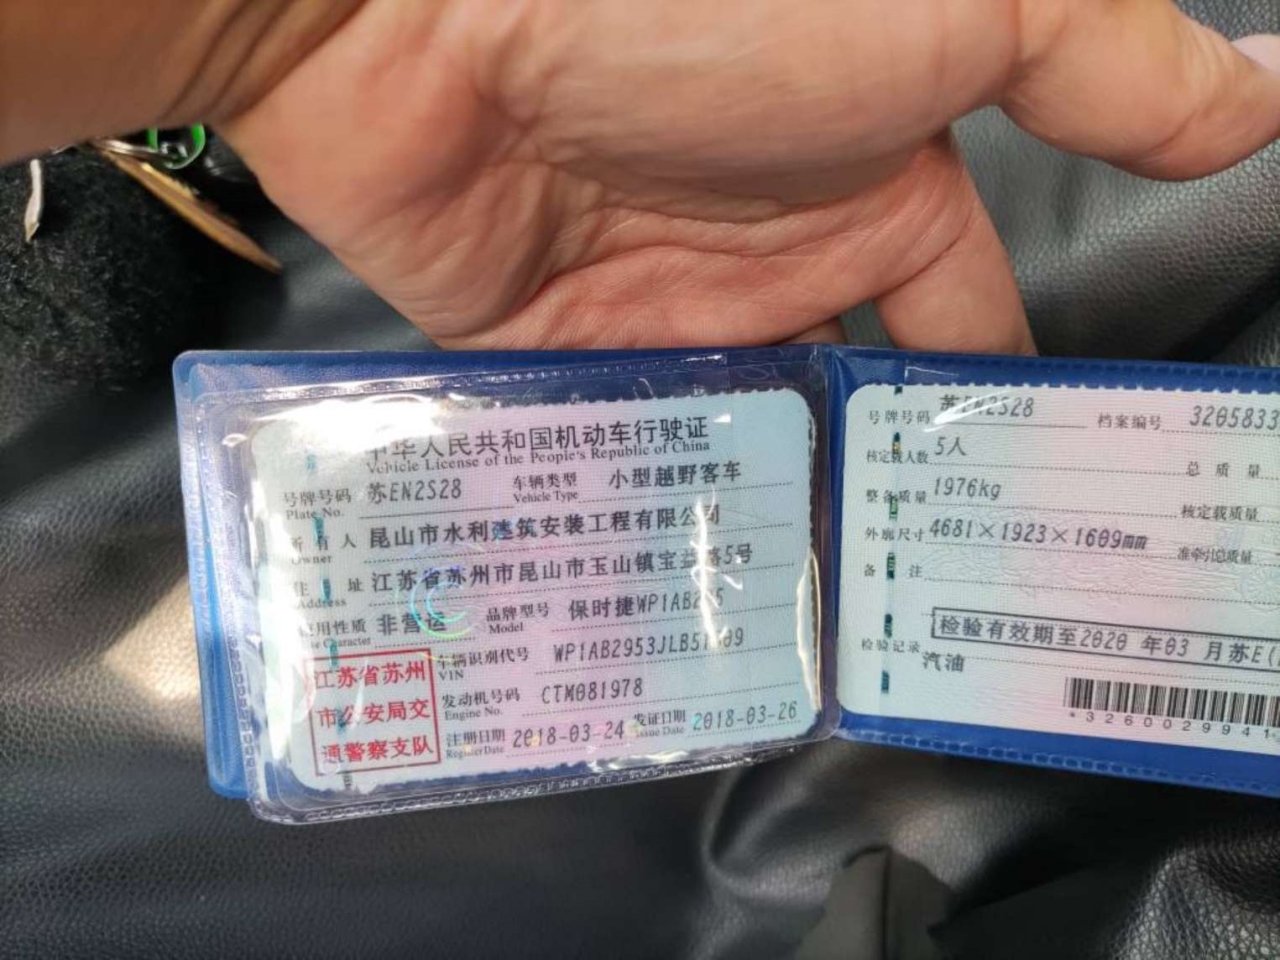 中华人民共和国机动车行驶证
Vehicle License of the People's Republic of China
号牌号码 苏EN2S28 车辆类型 小型越野客车
Plate No. Vehicle Type
所有人 昆山市水利建筑安装工程有限公司
Owner
住址 江苏省苏州市昆山市玉山镇宝益路5号
Address
使用性质 非营运 品牌型号 保时捷WP1AB295
Use Character Model
车辆识别代号
VIN
发动机号码 CTM081978
Engine No.
注册日期 2018-03-24 发证日期 2018-03-26
Register Date Issue Date
江苏省苏州
市公安局交
通警察支队
号牌号码 苏EN2S28 档案编号 3205833
核定载人数 5人 总质量
整备质量 1976kg 核定载质量
外廓尺寸 4681×1923×1609mm 准牵引总质量
备注
检验有效期至2020年03月苏E(
检验记录
汽油
*3260029941